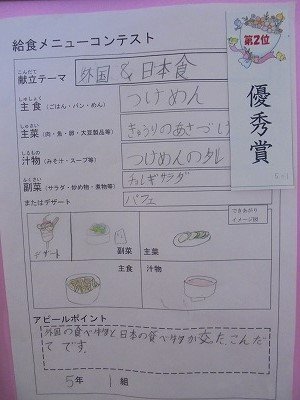 給食メニューコンテスト
第2位
優秀賞
こんだて
献立テーマ
外国 & 日本食
しゅしょく
主食(ごはん・パン・めん)
つけめん
しゅさい
主菜(肉・魚・卵・大豆製品等)
きゅうりのあさづけ
しるもの
汁物(みそ汁・スープ等)
つけめんの
ふくさい
副菜(サラダ・炒め物・煮物等)
チョレギサラダ
またはデザート
パフェ
できあがり
イメージ図
デザート
副菜
主菜
主食
汁物
アピールポイント
外国の食べ物と日本の食べ物が交った、こんだ
てです。
5年 1組